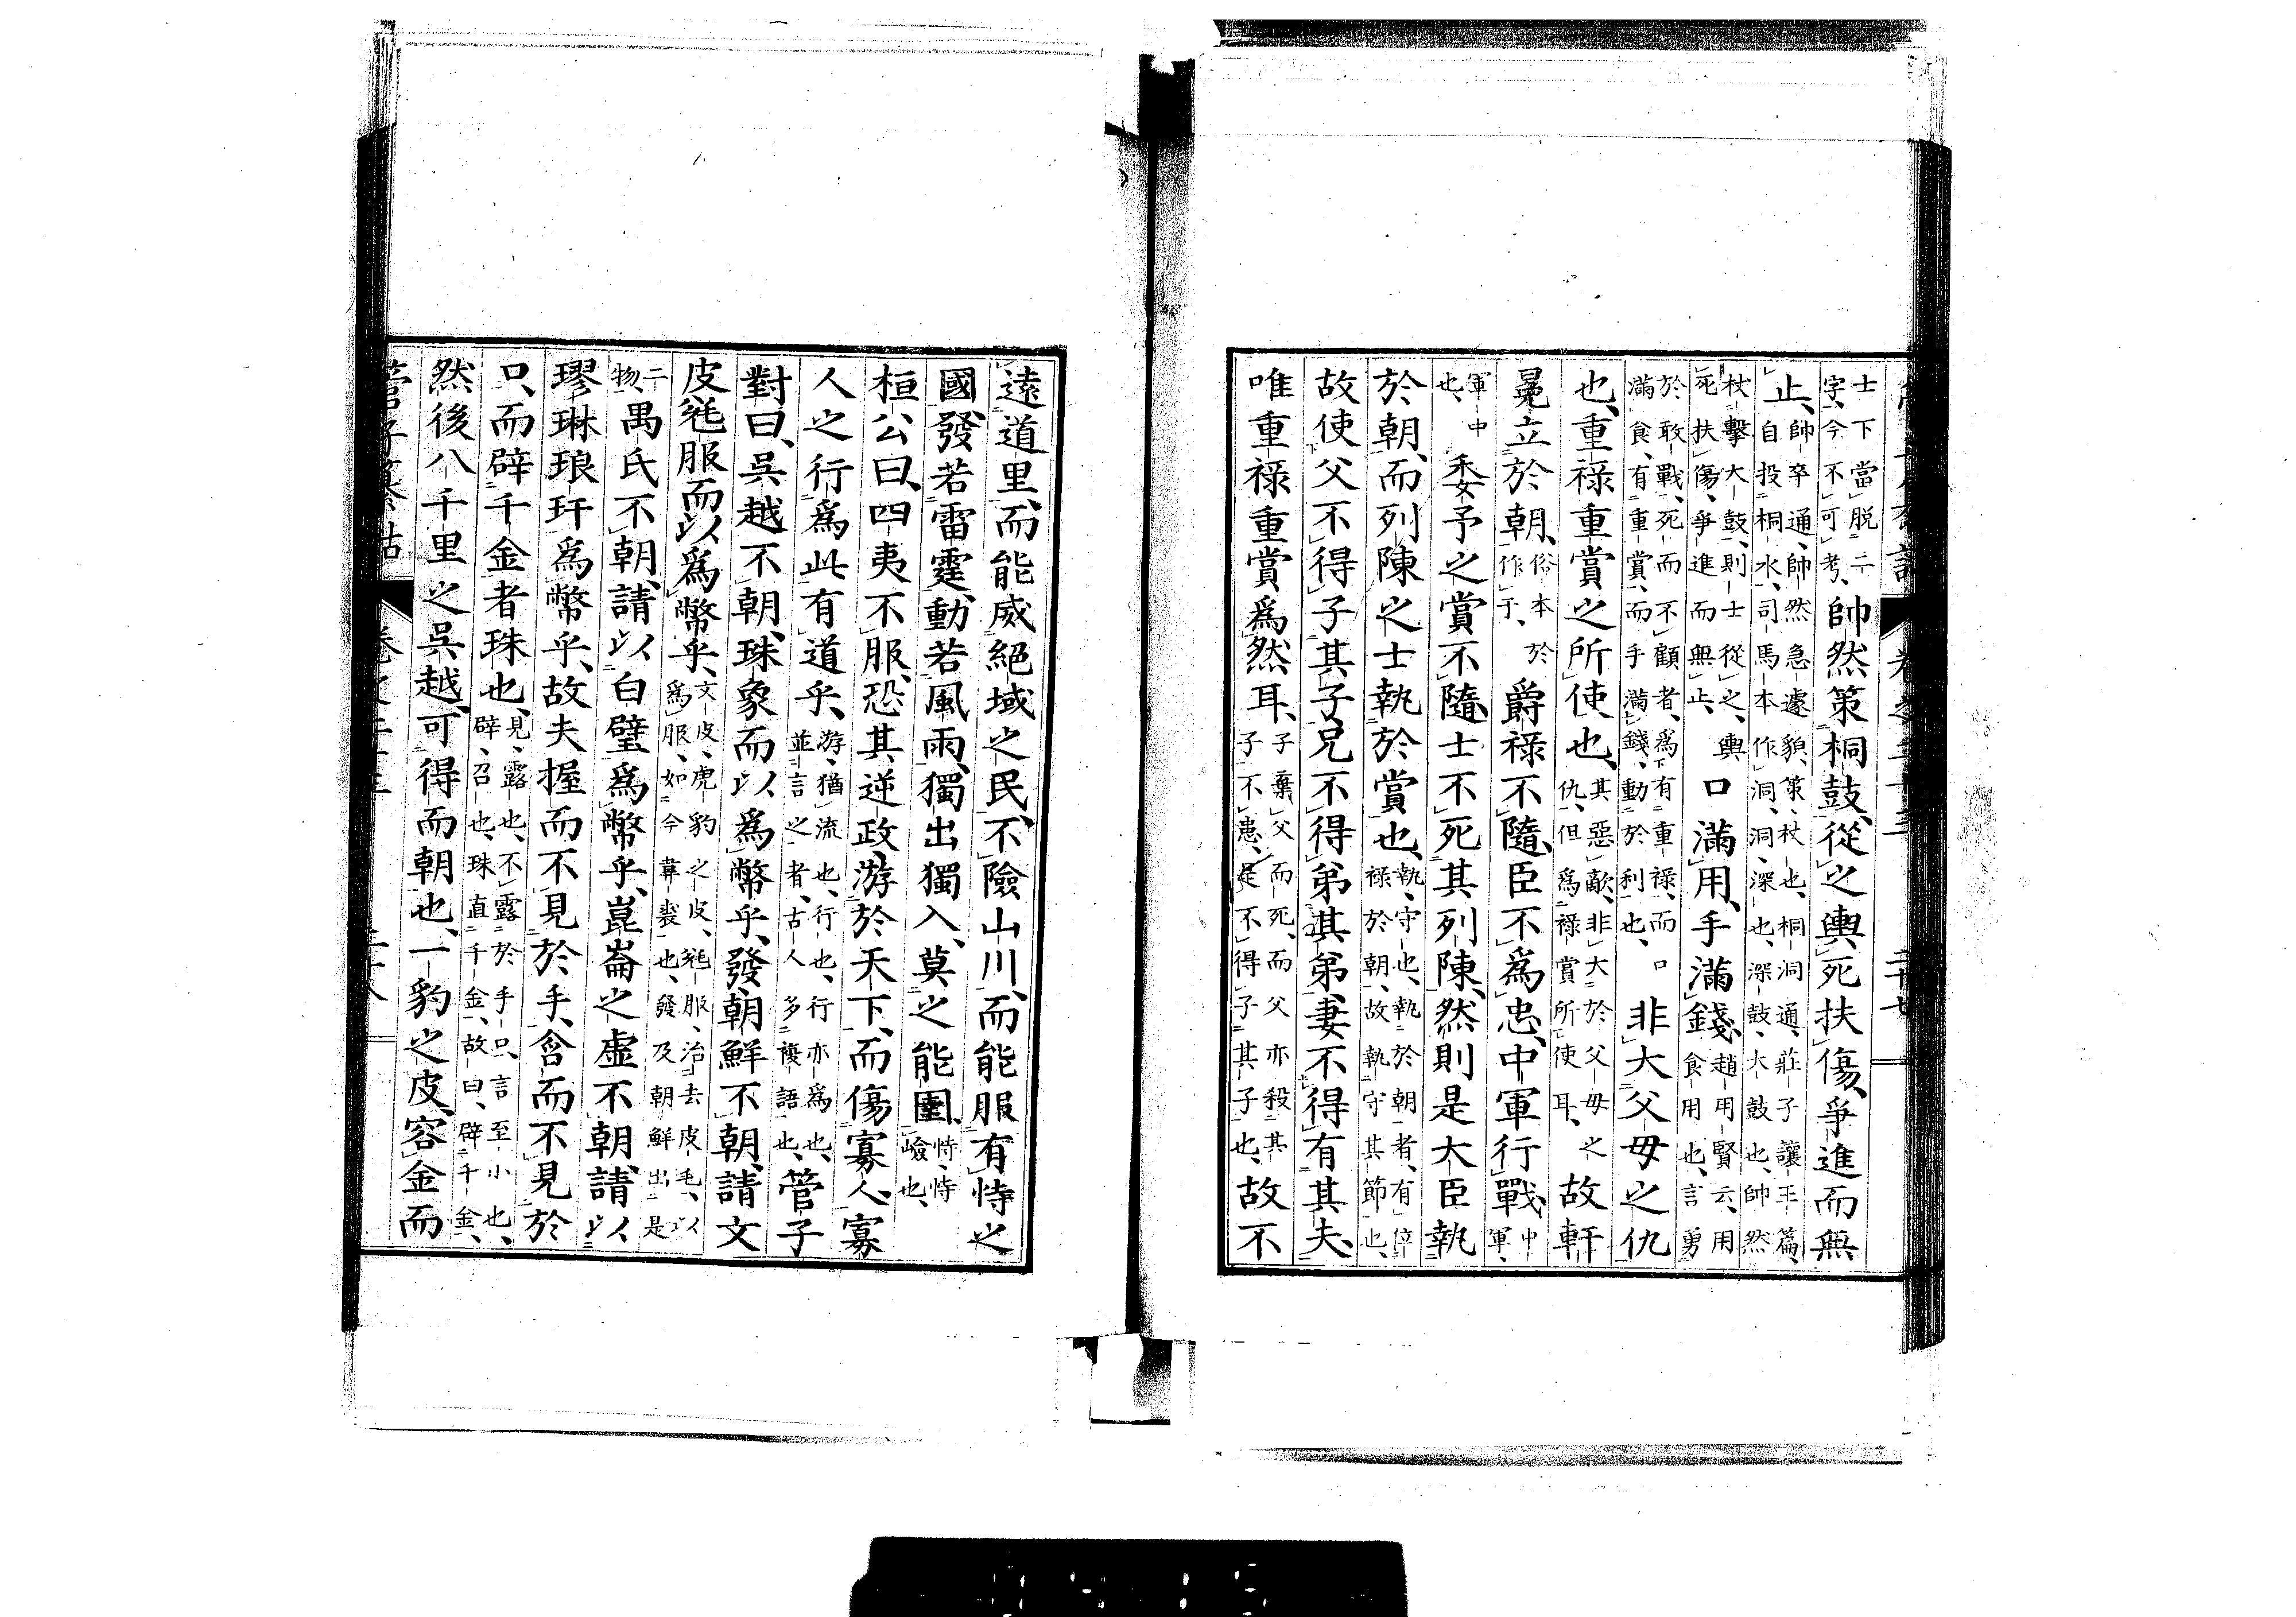 士下當脫二字、今不可考、帥然策桐鼓、從之輿死扶傷、爭進而無
止、帥卒通、帥然急遽貌、策、杖也、桐洞通、莊子讓王篇、自投桐水、司馬本作洞、洞、深也、深鼓、大鼓也、帥然
杖擊大鼓、則士從之、輿死扶傷、爭進而無止、口滿用、手滿錢、趙用賢云、用食用也、言勇
於敢戰、死而不顧者、爲有重祿、而口滿食、有重賞、而手滿錢、動於利也、非大父母之仇
也、重祿重賞之所使也、其惡敵、非大於父母之仇、但爲祿賞所使耳、故軒
冕立於朝、俗本於作于、爵祿不隨、臣不爲忠、中軍行戰、中軍、
軍中也、委予之賞不隨、士不死其列陳、然則是大臣執
於朝、而列陳之士執於賞也、執、守也、執於朝者、有倍祿於朝、故執守其節也、
故使父不得子其子、兄不得弟其弟、妻不得有其夫、
唯重祿重賞爲然耳、子棄父而死、而父亦殺其子不恚、是不得子其子也、故不
遠道里、而能威絕域之民、不險山川、而能服有恃之
國、發若雷霆、動若風雨、獨出獨入、莫之能圉、恃、恃嶮也、
桓公曰、四夷不服、恐其逆政、游於天下、而傷寡人、寡
人之行爲此有道乎、游、猶流也、行也、行亦爲也、並言之者、古人多複語也、管子
對曰、吳越不朝、珠象而以爲幣乎、發朝鮮不朝、請文
皮毤服而以爲幣乎、文皮、虎豹之皮、毤服、治去皮毛、以爲服、如今韋裘也、發及朝鮮出是
二物、禺氏不朝、請以白璧爲幣乎、崑崙之虛不朝、請以
璆琳琅玕爲幣乎、故夫握而不見於手、含而不見於
口、而辟千金者珠也、見、露也、不露於手口、言至小也、辟、召也、珠直千金、故曰、辟千金、
然後八千里之吳越、可得而朝也、一豹之皮、容金而
管子纂詁